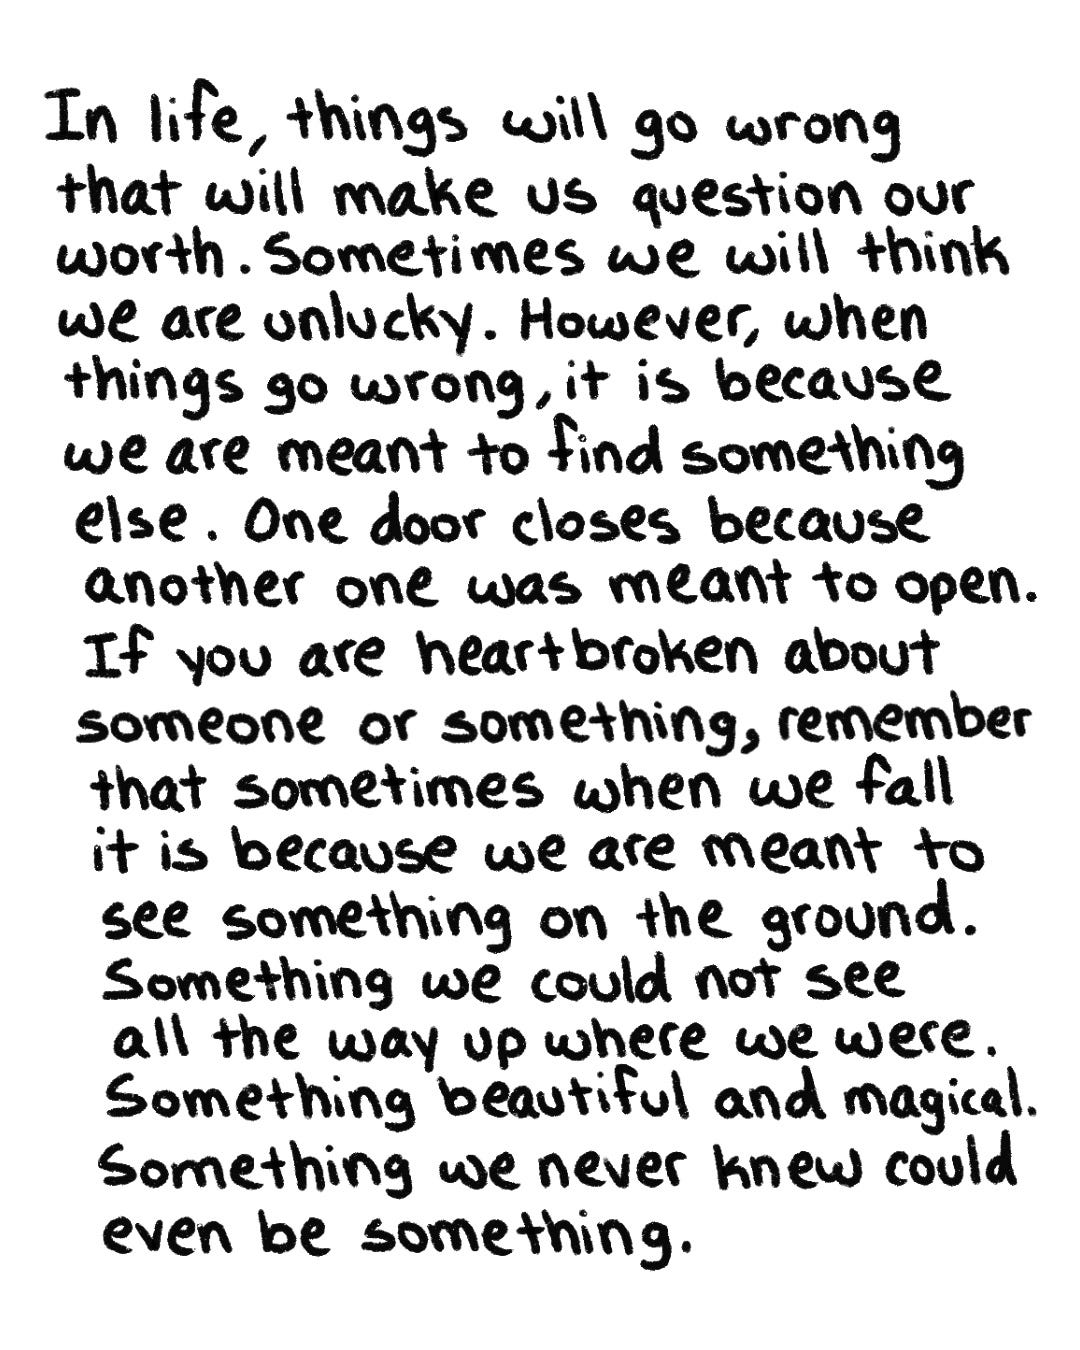 In life, things will go wrong
that will make us question our
worth. Sometimes we will think
we are unlucky. However, when
things go wrong, it is because
we are meant to find something
else. One door closes because
another one was meant to open.
If you are heartbroken about
someone or something, remember
that sometimes when we fall
it is because we are meant to
see something on the ground.
Something we could not see
all the way up where we were.
Something beautiful and magical.
Something we never knew could
even be something.